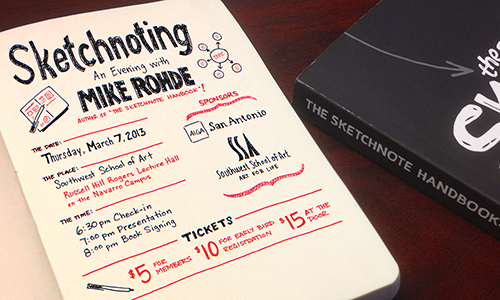 Sketchnoting
An Evening with
MIKE ROHDE
AUTHOR OF "THE SKETCHNOTE HANBOOK"!
THE DATE:
Thursday, March 7, 2013
THE PLACE:
Southwest School of Art
Russell Hill Rogers Lecture Hall
on the Navarro Campus
THE TIME:
6:30 pm Check-in
7:00 pm Presentation
8:00 pm Book Signing
SPONSORS
AIGA San Antonio
SSA
Southwest School of Art
ART FOR LIFE
TICKETS
$5 FOR MEMBERS
$10 FOR EARLY BIRD REGISTRATION
$15 AT THE DOOR
the
THE SKETCHNOTE HANDBOOK